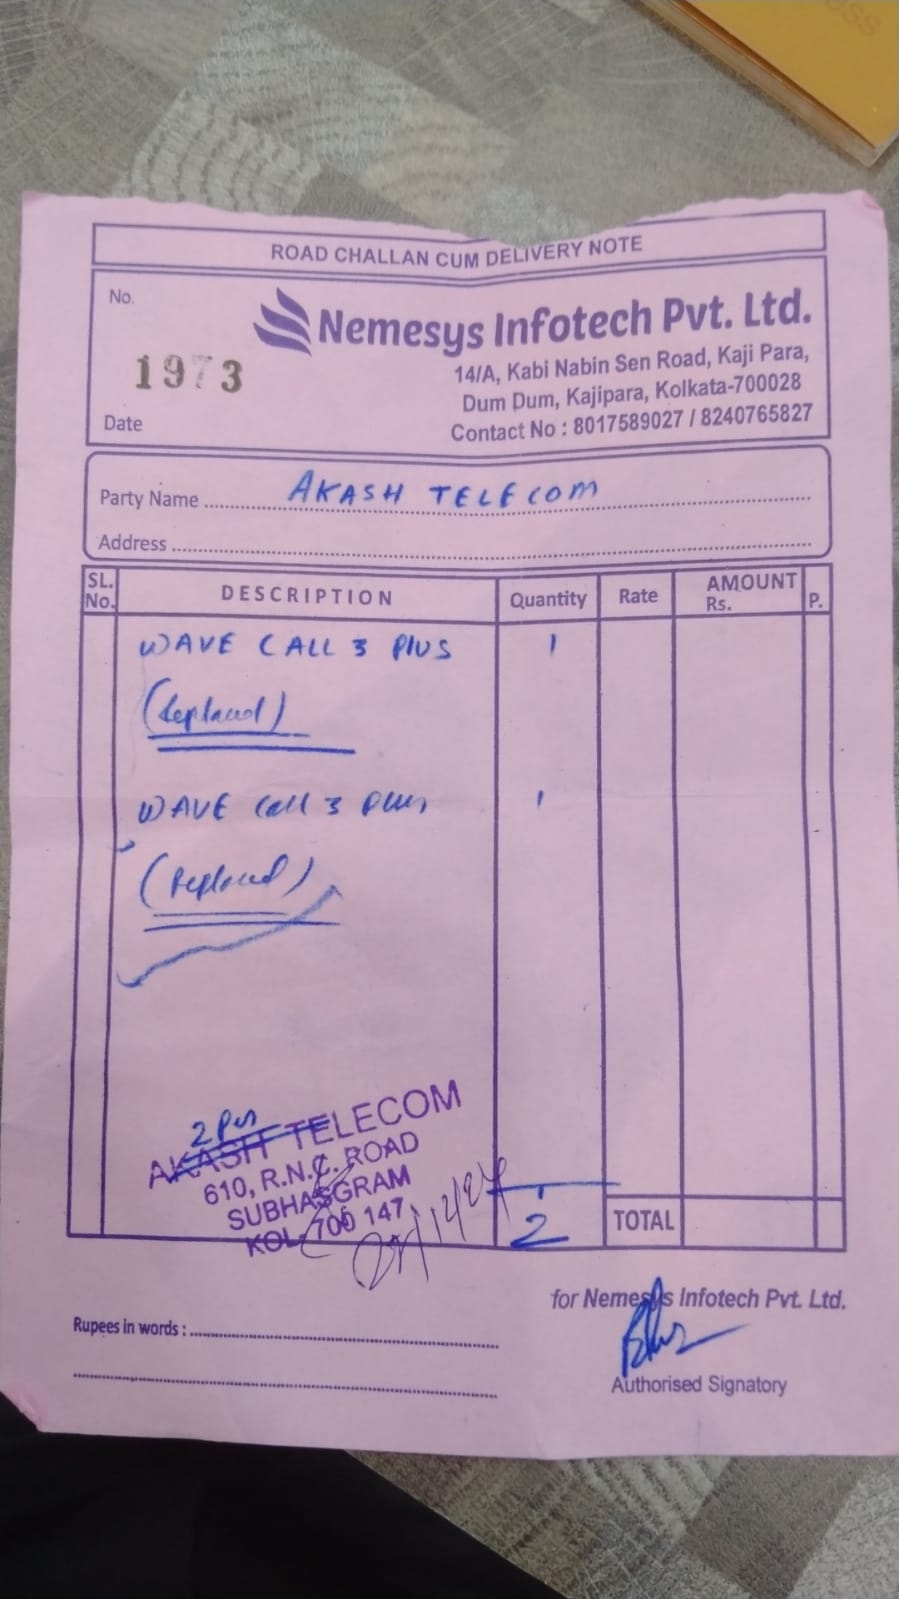 ROAD CHALLAN CUM DELIVERY NOTE
No.
1973
Date
Nemesys Infotech Pvt. Ltd.
14/A, Kabi Nabin Sen Road, Kaji Para,
Dum Dum, Kajipara, Kolkata-700028
Contact No : 8017589027 / 8240765827
Party Name AKASH TELECOM
Address
SL. No. DESCRIPTION Quantity Rate AMOUNT Rs. P.
WAVE CALL 3 PLUS 1
(Replaced)
WAVE Call 3 Plus 1
(Replaced)
2 Pcs
AKASH TELECOM
610, R.N.C. ROAD
SUBHASGRAM
KOL-700 147
2 TOTAL
for Nemesys Infotech Pvt. Ltd.
Rupees in words :
Authorised Signatory